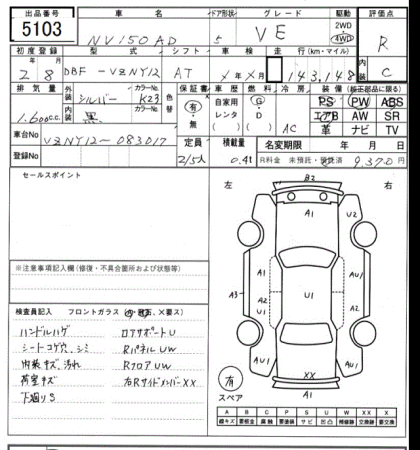 出品番号 車名 ドア形状 グレード 駆動 評価点
5103 NV150 AD 5 VE 2WD 4WD R
初度登録 型式 シフト 車検 走行(km・マイル)
28 DBF-VZNY12 AT X年X月 143,148 C
排気量 外装 シルバー カラーNo. K23 色替 保証書 車歴 燃料 冷房 装備(純正部品に限る)
1,600cc 内装 黒 カラーNo. 有・無 自家用 レンタ G D AC PS PW ABS
エアB AW SR
革 ナビ TV
車台No VZNY12-083017 定員 積載量 名変期限 年 月 日
登録No 2/5人 0.4t R料金 未預託・預託済 9,370円
セールスポイント
左 右
B2
A1
U2
A1 A1
A3 A2 U1 A2
U1
A1
AU1 XX AU1
A1
有
スペア
※注意事項記入欄(修復・不具合箇所および状態等)
検査員記入 フロントガラス
ハンドルハゲ ロアサポートU
シートコゲ穴、シミ RパネルUW
内装キズ、汚れ RフロアUW
荷室キズ 右RサイドメンバーXX
下廻りS
A B C P S U W X XX
線キズ 要板金 腐触 要塗装 サビ 凹凸 補修跡 要交換 交換済